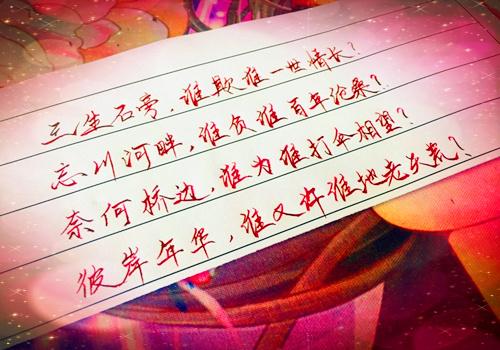 三生石旁,谁欺谁一世情长?
忘川河畔,谁负谁百年沧桑?
奈何桥边,谁为谁打伞相望?
彼岸年华,谁又许谁地老天荒?